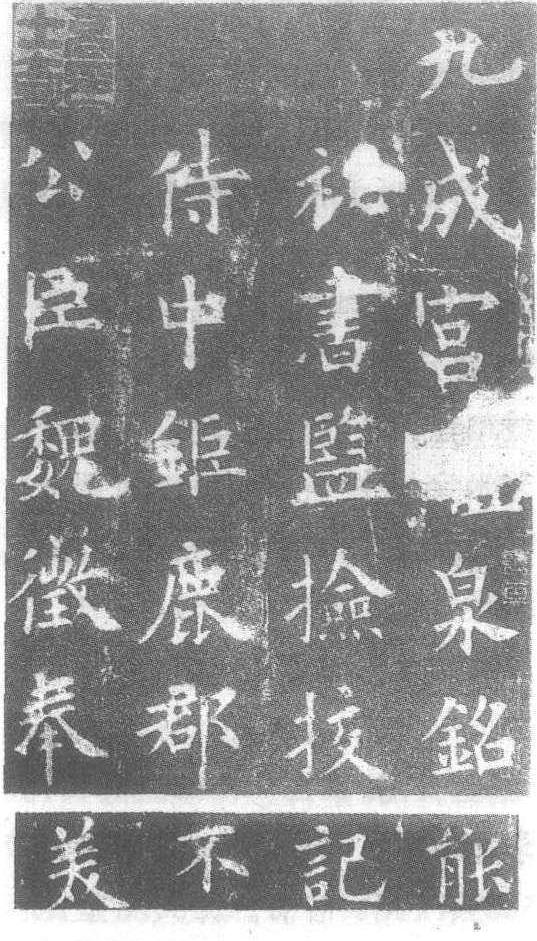 九成宮泉銘
祕書監撿挍
侍中鉅鹿郡
公臣魏徵奉
能記不美